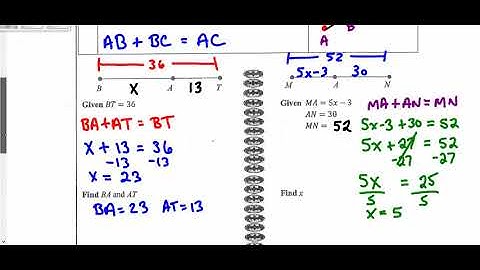 AB + BC = AC
B
A
36
B X A 13 T
Given BT = 36
BA+AT = BT
X + 13 = 36
-13 -13
X = 23
Find BA and AT
BA = 23 AT = 13
52
5x-3 30
M A N
Given MA = 5x - 3
AN = 30
MN = 52
MA + AN = MN
5x-3+30 = 52
5x + 27 = 52
-27 -27
5x = 25
5 5
X = 5
Find x